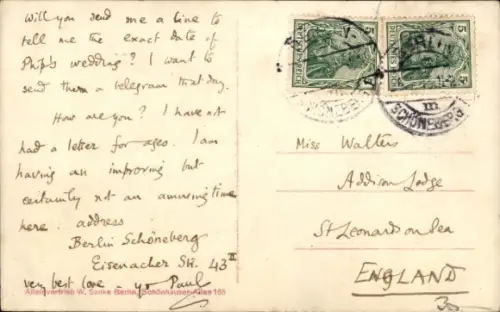 Will you send me a line to
tell me the exact date of
Phip's wedding? I want to
send them a telegram that day.
How are you? I have not
had a letter for ages. I am
having an improving but
certainly not an amusing time
here. address
Berlin Schöneberg
Eisenacher Str. 43 II
very best love - yr Paul
Alleinvertrieb W. Sanke Berlin, Schönhauser Allee 168
5 DEUTSCHES REICH 5
5 DEUTSCHES REICH 5
BERLIN
SCHÖNEBERG
m
SCHÖNEBERG
Miss Walters
Addison Lodge
St Leonards on Sea
ENGLAND